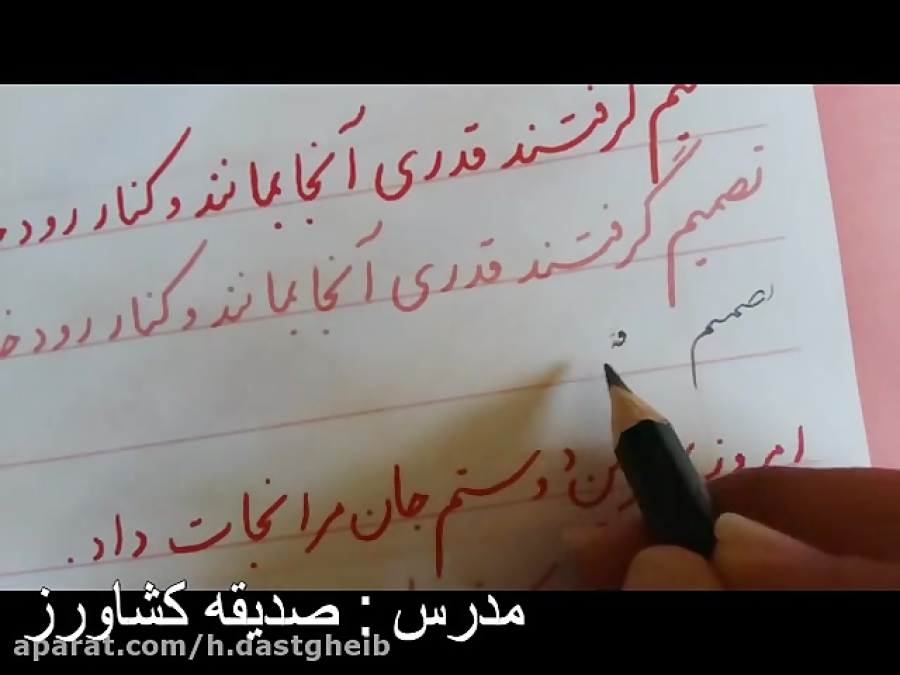 تصمیم گرفتند قدری آنجا بمانند و کنار رود
تصمیم گرفتند قدری آنجا بمانند و کنار رودخ
تصمیم
امروز دوستم جان مرا نجات داد.
مدرس : صدیقه کشاورز
aparat.com/h.dastgheib